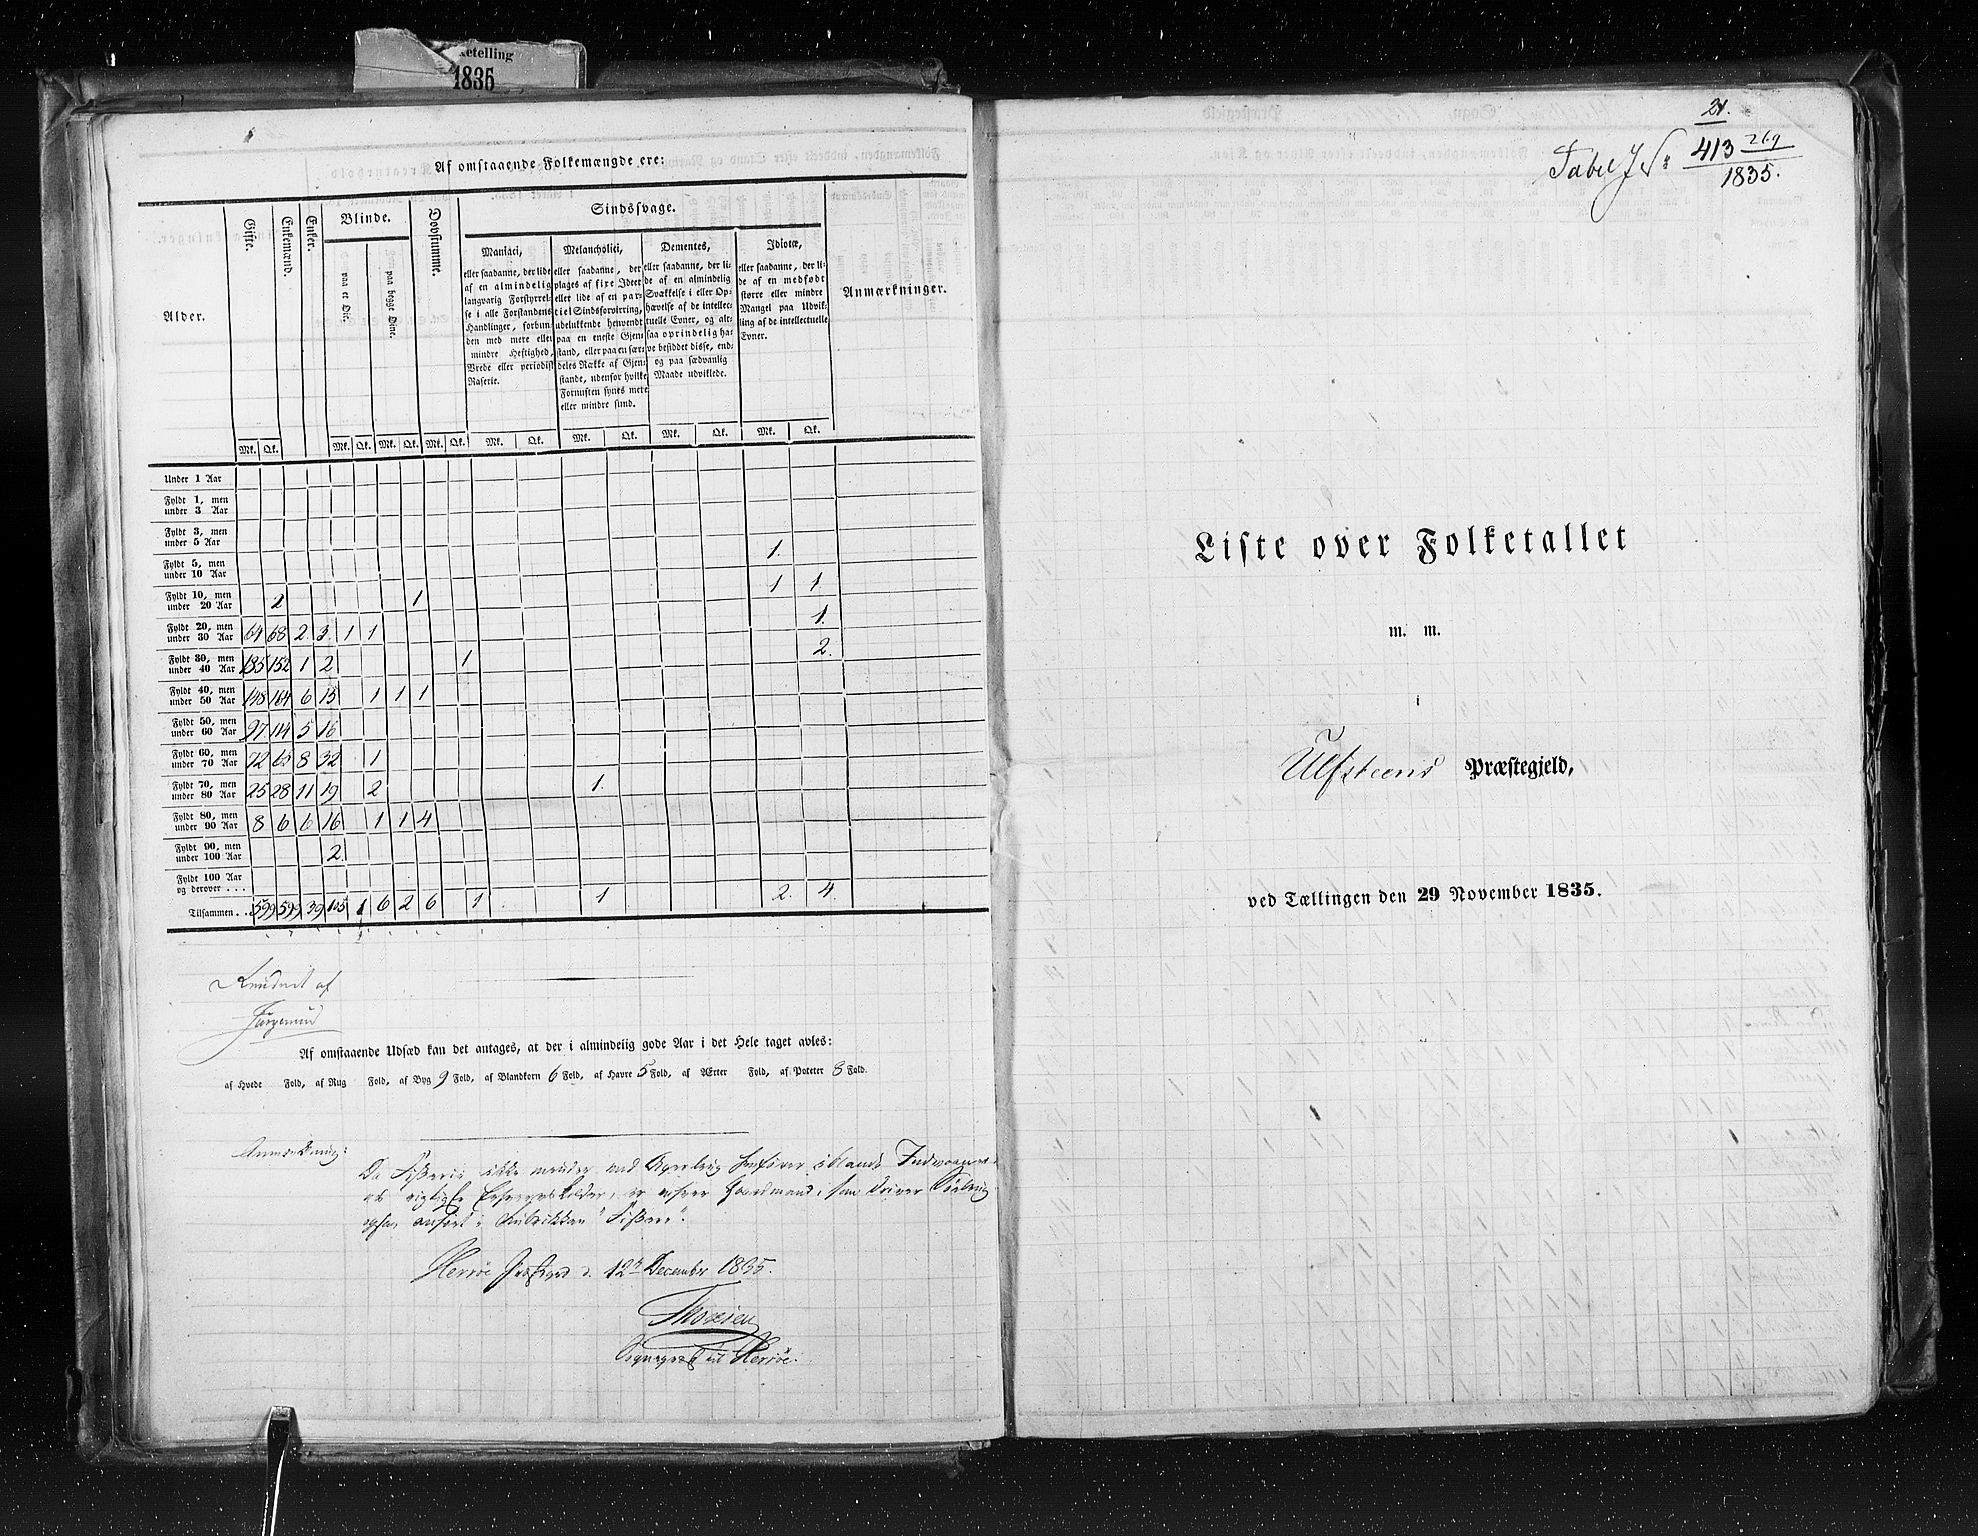 ketelling
1835
Af omstaaende Folkemængde ere:
Alder.
Gifte.
Enkemænd.
Enker.
Blinde.
paa et Øie.
paa begge Øine.
Døvstumme.
Sindssvage.
Maniaci,
eller saadanne, der lide
af en almindelig
langvarig Forstyrrel-
se i alle Forstandens
Handlinger, forbun-
den med mere eller
mindre Heftighed,
Vrede eller periodisk
Raserie.
Melancholici,
eller saadanne, der
plages af fixe Ideer
eller lide af en par-
tiel Sindsforvirring,
udelukkende henvendt
paa en eneste Gjen-
stand, eller paa en sær-
deles Række af Gjen-
stande, udenfor hvilke
Fornuften synes mere
eller mindre sund.
Dementes,
eller saadanne, der li-
de af en almindelig
Svækkelse i eller Op-
hævelse af de intellec-
tuelle Evner, og alt-
saa oprindelig ha-
ve besiddet disse, end-
og paa sædvanlig
Maade udviklede.
Idiotæ,
eller saadanne, der li-
de af en medfødt
større eller mindre
Mangel paa Udvik-
ling af de intellectuelle
Evner.
Anmærkninger.
Mk. Qk. Mk. Qk. Mk. Qk. Mk. Qk. Mk. Qk. Mk. Qk. Mk. Qk. Mk. Qk.
Under 1 Aar
Fyldt 1, men
under 3 Aar
Fyldt 3, men
under 5 Aar
1.
Fyldt 5, men
under 10 Aar
1 1
Fyldt 10, men
under 20 Aar
2 1 1.
Fyldt 20, men
under 30 Aar
64 68 2 3. 1 1 2.
Fyldt 30, men
under 40 Aar
185 152 1 2 1
Fyldt 40, men
under 50 Aar
148 164 6 15 1 1 1
Fyldt 50, men
under 60 Aar
97 114 5 16
Fyldt 60, men
under 70 Aar
72 65 8 32 1
Fyldt 70, men
under 80 Aar
25 28 11 19 2 1.
Fyldt 80, men
under 90 Aar
8 6 6 16 1 1 4
Fyldt 90, men
under 100 Aar
2
Fyldt 100 Aar
og derover . . .
Tilsammen . . 599 599 39 105 1 6 2 6 1 1 2. 4.
af
Af omstaaende Udsæd kan det antages, at der i almindelig gode Aar i det Hele taget avles:
af Hvede Fold, af Rug Fold, af Byg 9 Fold, af Blandkorn 6 Fold, af Havre 5 Fold, af Ærter Fold, af Poteter 8 Fold.
Anmærkning:
Da Fiskerie ikke
som driver
anført i Rubrikken "Fiskere".
Herrøe Præstegaard d. 12te December 1835.
Thoresen
Sognepræst til Herröe.
21.
Tabel No 413 269
1835.
Liste over Folketallet
m. m.
i
Ulfsteens Præstegjeld,
ved Tællingen den 29 November 1835.